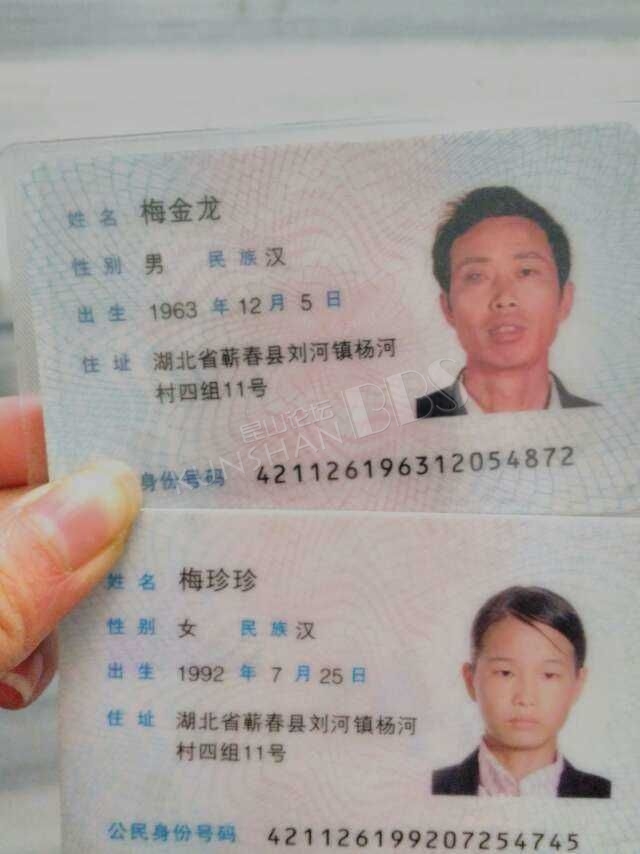 姓名 梅金龙
性别 男 民族 汉
出生 1963 年 12 月 5 日
住址 湖北省蕲春县刘河镇杨河
村四组11号
昆山论坛
KUNSHAN BBS
身份号码 421126196312054872
姓名 梅珍珍
性别 女 民族 汉
出生 1992 年 7 月 25 日
住址 湖北省蕲春县刘河镇杨河
村四组11号
公民身份号码 421126199207254745